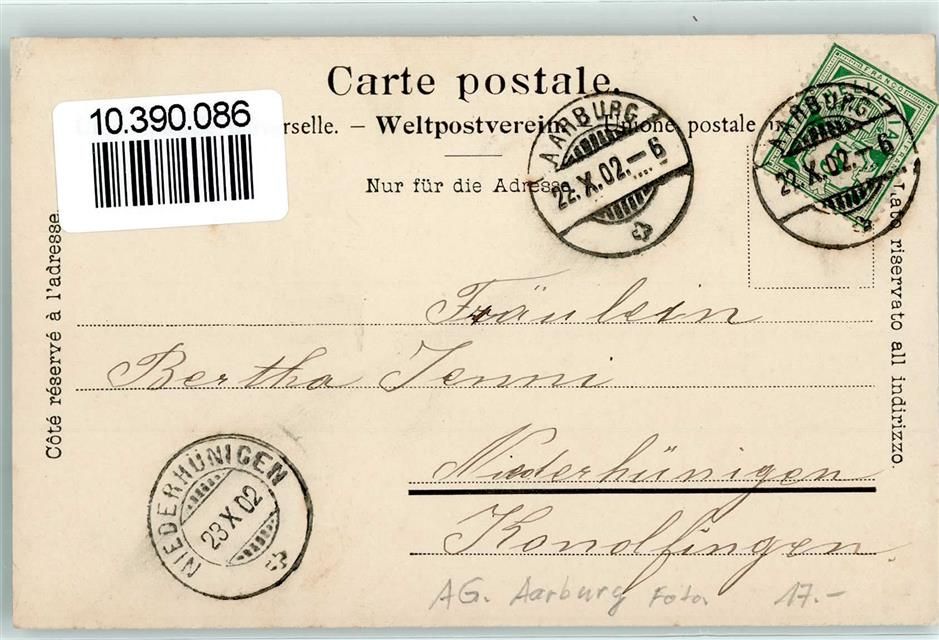 Carte postale.
10.390.086
erselle. – Weltpostverein. – Unione postale
Nur für die Adresse.
Côté réservé à l'adresse.
Lato riservato all indirizzo.
FRANCO
HELVETIA
AARBURG
22.X.02.–6
AARBURG
22.X.02.–6
Fräulein
Bertha Jenni
Niederhünigen
Konolfingen
NIEDERHÜNIGEN
23 X 02
AG. Aarburg Foto. 17.-